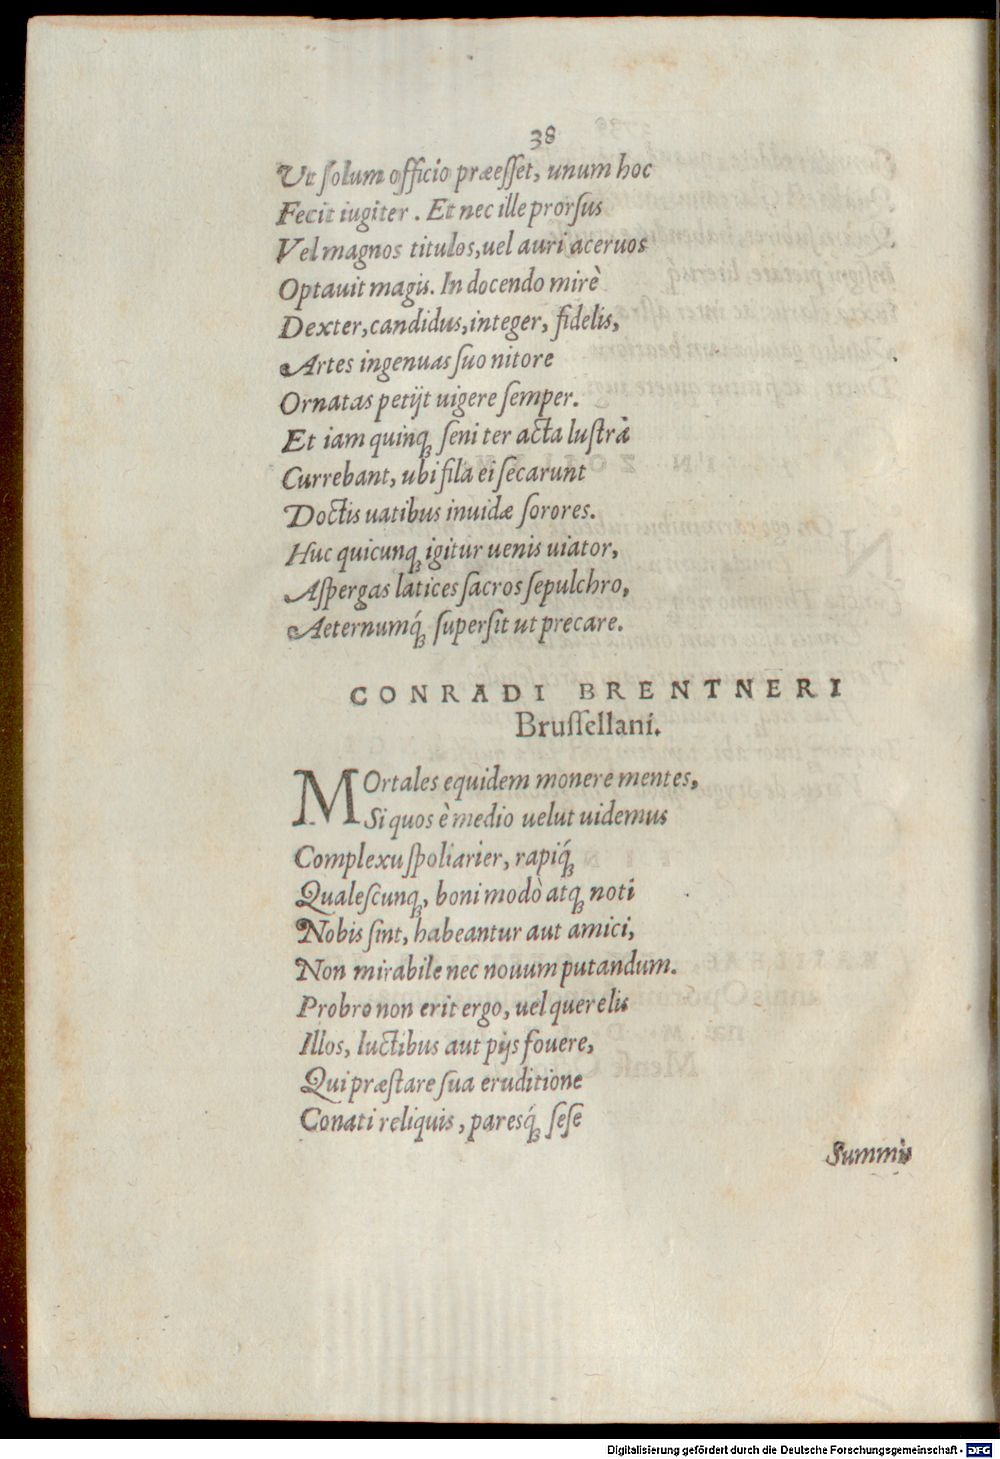 38
Ut ſolum officio præeſſet, unum hoc
Fecit iugiter. Et nec ille prorſus
Vel magnos titulos, uel auri aceruos
Optauit magis. In docendo mirè
Dexter, candidus, integer, fidelis,
Artes ingenuas ſuo nitore
Ornatas petijt uigere ſemper.
Et iam quinꝗ ſeni ter acta luſtra
Currebant, ubi fila ei ſecarunt
Doctis uatibus inuidæ ſorores.
Huc quicunꝗ igitur uenis uiator,
Aſpergas latices ſacros ſepulchro,
Aeternumꝗ́ ſuperſit ut precare.
CONRADI BRENTNERI
Bruſſellani.
MOrtales equidem monere mentes,
Si quos è medio uelut uidemus
Complexu ſpoliarier, rapiꝗ́
Qualeſcunꝗ, boni modò atꝗ noti
Nobis ſint, habeantur aut amici,
Non mirabile nec nouum putandum.
Probro non erit ergo, uel querelis
Illos, luctibus aut pijs fouere,
Qui præſtare ſua eruditione
Conati reliquis, pareſꝗ́ ſeſe
Summis
Digitalisierung gefördert durch die Deutsche Forschungsgemeinschaft - DFG